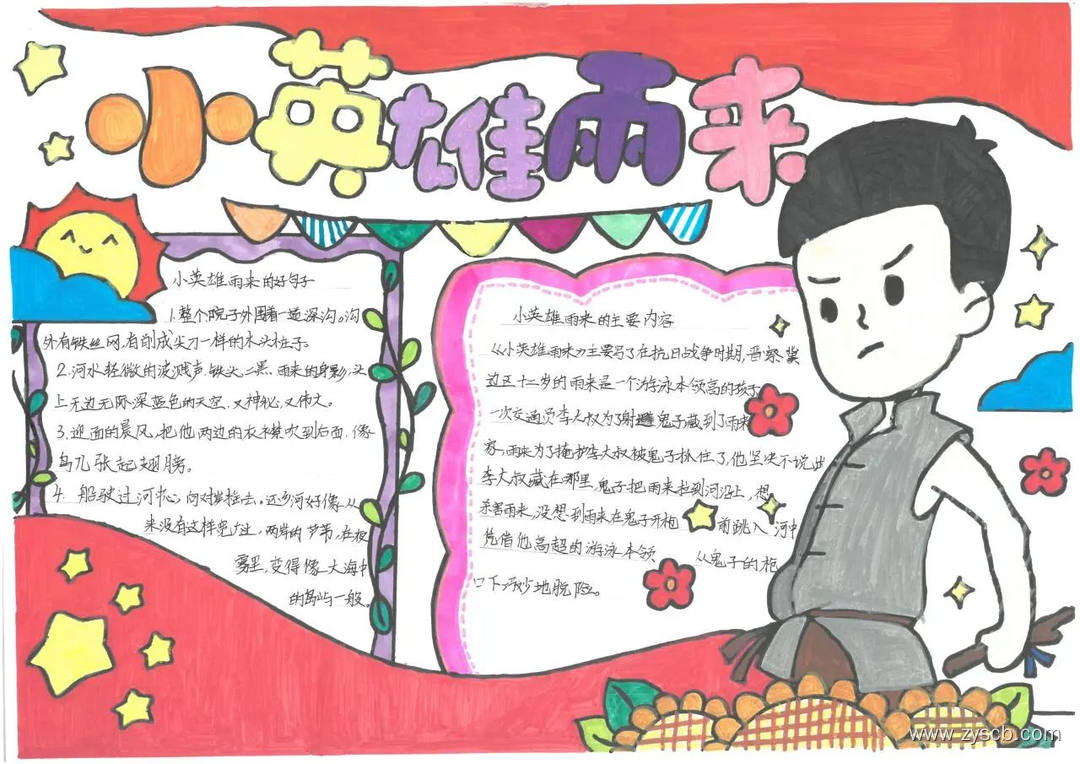 小英雄雨来
小英雄雨来的好句子
1.整个院子外围有一道深沟。沟
外有铁丝网,有削成尖刀一样的木头柱子
2.河水轻微的波溅声,铁头、二黑、雨来的身影,头
上无边无际深蓝色的天空,又神秘,又伟大。
3.迎面的晨风,把他两边的衣襟吹到后面,像
鸟儿张起翅膀。
4. 船驶过河心,向对岸摇去。还乡河好像从
来没有这样宽广过,两岸的芦苇,在夜
雾里,变得像大海中
的岛屿一般。
小英雄雨来的主要内容
《小英雄雨来》主要写了在抗日战争时期,晋察冀
边区十二岁的雨来是一个游泳本领高的孩子
一次交通员李大叔为了躲避鬼子藏到了雨来
家,雨来为了掩护李大叔被鬼子抓住了,他坚决不说出
李大叔藏在那里,鬼子把雨来拉到河沿上,想
杀害雨来,没想到雨来在鬼子开枪 前跳入河中
凭借他高超的游泳本领 从鬼子的枪
口下巧妙地脱险。
www.zyscb.com